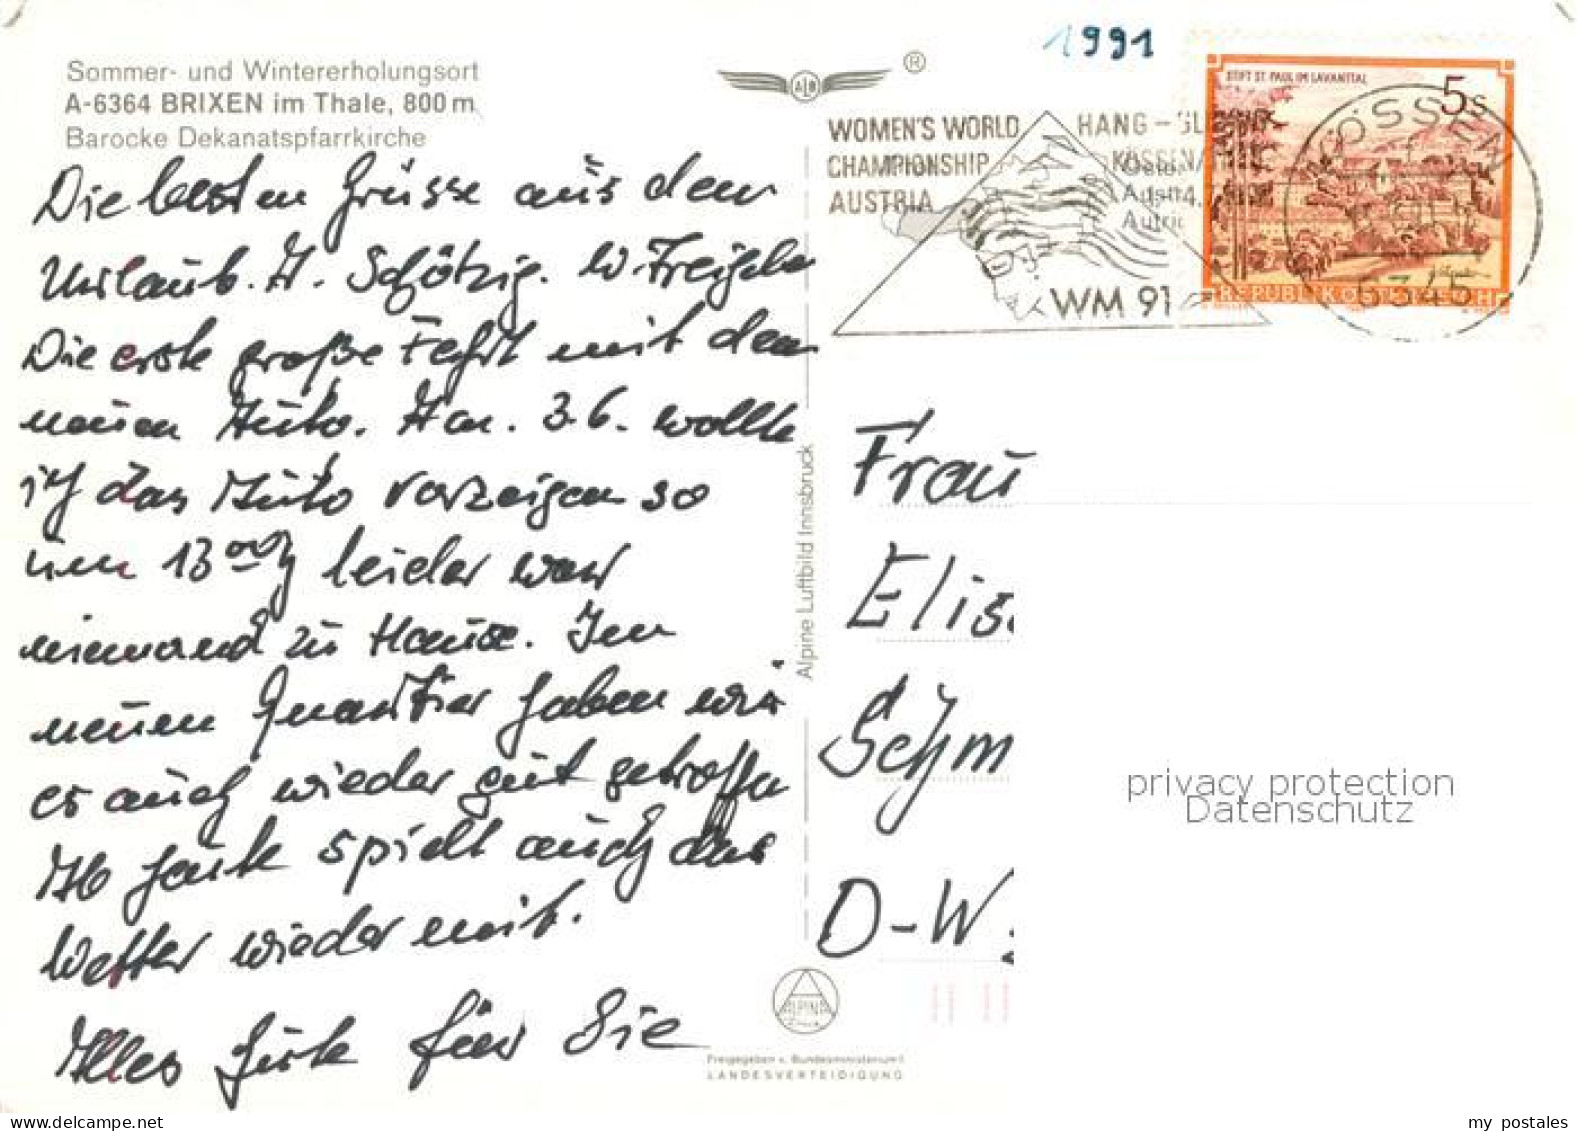 1991
Sommer- und Wintererholungsort
A-6364 BRIXEN im Thale, 800 m
Barocke Dekanatspfarrkirche
ALB ®
WOMEN'S WORLD
CHAMPIONSHIP
AUSTRIA
HANG-GL
KÖSSEN/
WM 91
STIFT ST. PAUL IM LAVANTTAL
5 S
REPUBLIK ÖSTERREICH
KÖSSEN
6345
Die besten Grüsse aus dem
Urlaub. H. Schötzig. W. Freigeber
Die erste große Fahrt mit dem
neuen Auto. Am. 3.6. wollte
ich das Auto vorzeigen so
um 13 00 leider war
niemand zu Hause. Im
neuen Quartier haben wir
es auch wieder gut getroffen
Ab heute spielt auch das
Wetter wieder mit.
Alles Gute für Sie
Alpine Luftbild Innsbruck
Frau
Elis
Schm
D-W
privacy protection
Datenschutz
ALPINA
Freigegeben v. Bundesministerium f.
LANDESVERTEIDIGUNG
my postales